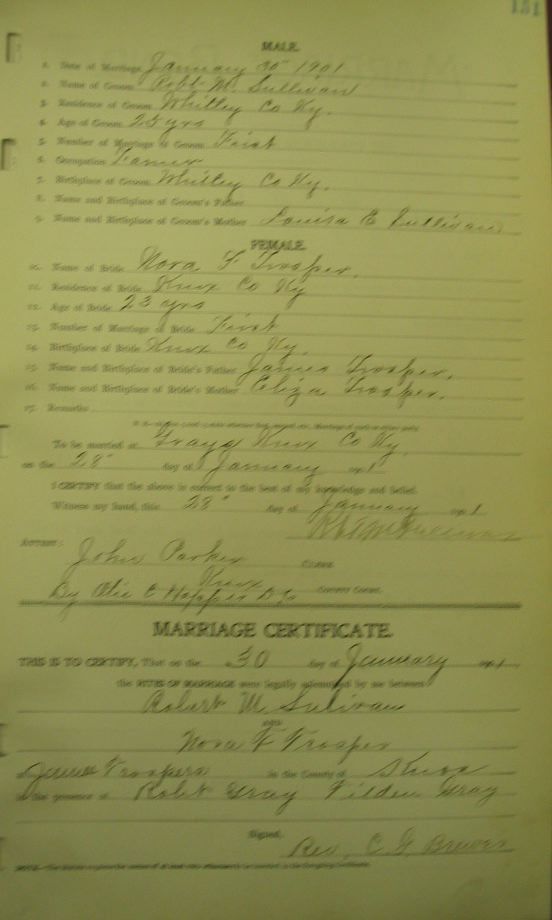 151
MALE.
1. Date of Marriage January 30" 1901
2. Name of Groom Robt M. Sullivan
3. Residence of Groom Whitley Co Ky.
4. Age of Groom 25 yrs
5. Number of Marriage of Groom First
6. Occupation Farmer
7. Birthplace of Groom Whitley Co Ky.
8. Name and Birthplace of Groom's Father
9. Name and Birthplace of Groom's Mother Louisa E Sullivan
FEMALE.
10. Name of Bride Nora F Trosper.
11. Residence of Bride Knox Co Ky
12. Age of Bride 23 yrs
13. Number of Marriage of Bride First
14. Birthplace of Bride Knox Co Ky.
15. Name and Birthplace of Bride's Father James Trosper.
16. Name and Birthplace of Bride's Mother Eliza Trosper.
17. Remarks
To be married at Grays Knox Co Ky.
on the 28" day of January 1901
I CERTIFY that the above is correct to the best of my knowledge and belief.
Witness my hand, this 28" day of January 1901
Robt M Sullivan
ATTEST:
John Parker CLERK
Knox
By Olie C Hopper D.C. County Court.
MARRIAGE CERTIFICATE.
THIS IS TO CERTIFY, That on the 30 day of January 1901
the RITES OF MARRIAGE were legally solemnized by me between
Robert M Sulivan
AND
Nora F Trosper
James Trospers in the County of Knox
in the presence of Robt Gray Tilden Gray
Signed,
Rev, C. G. Brewer